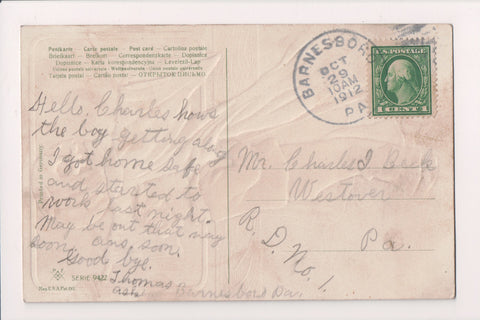 Postkarte Carte postale Post card Cartolina postale
Briefkaart Brefkort Correspondenzkarte Dopisnice
Dopisnice Karta korespondencyjna Levelező-Lap
Tarjeta postal Cartão postal ОТКРЫТОЕ ПИСЬМО
BARNESBORO
OCT
29
10 AM
1912
PA.
U.S. POSTAGE
1 CENT 1
Hello, Charles hows
the boy getting along
I got home safe
and started to
work last night.
May be out that way
soon. ans. soon.
Good bye.
Thomas
Barnesboro Pa.
Printed in Germany.
SERIE 9422
Mr. Charles I
Westover
R. Pa.
D.
No. 1